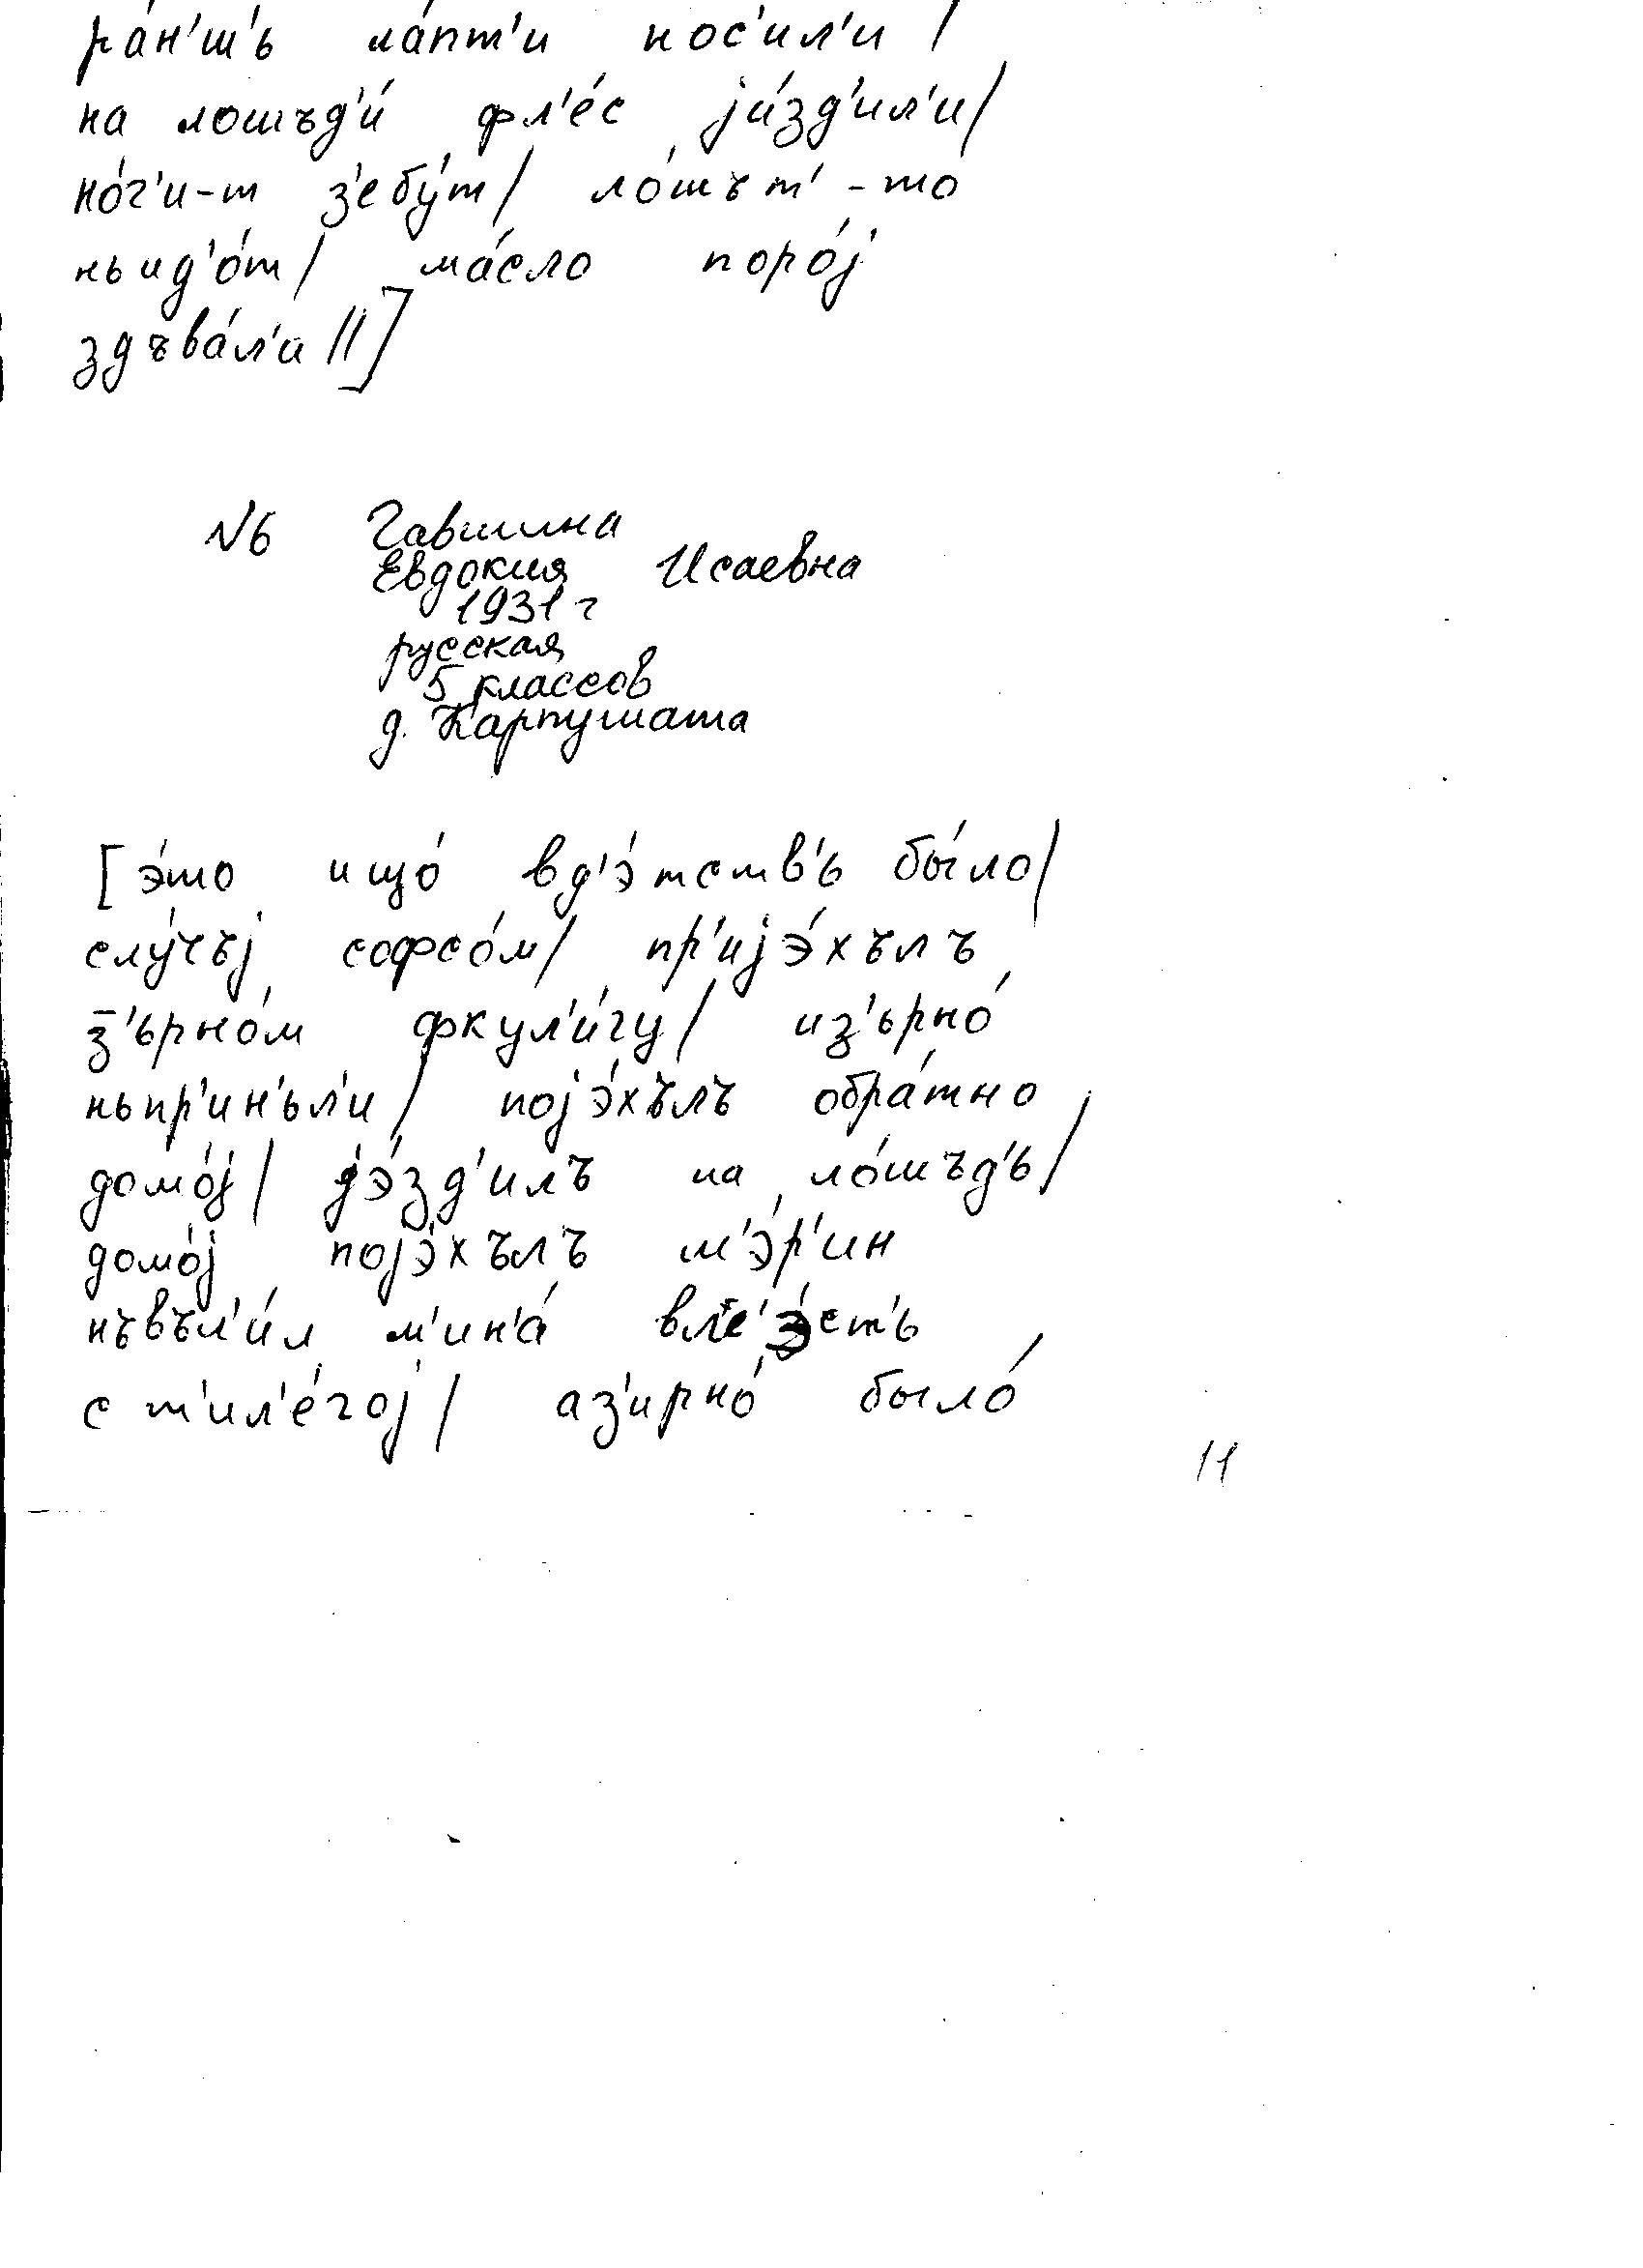 ра́н'ш'ь ла́пт'и нос'ил'и /
на лошъд'и́ фл'е́с jи́зд'ил'и/
но́г'и-т з'ебу́т/ ло́шът'-то
ньид'о́т/ ма́сло поро́j
здъва́л'и //]
№6 Гавшина
Евдокия Исаевна
1931 г
русская
5 классов
д. Карпушата
[э́то ищо́ вд'э́тств'ь бы́ло/
слу́чъj софсо́м/ пр'иjэ́хълъ
з̄'ьрно́м фкул'и́гу/ из'ьрно́
ньпр'ин'ьл'и/ поjэ́хълъ обра́тно
домо́j/ jэ́зд'илъ на ло́шъд'ь/
домо́j поjэ́хълъ м'э́р'ин
нъвъл'и́л м'ин'а́ вл'э́ст'ь
с т'ил'е́гоj/ аз'ирно́ было́
11